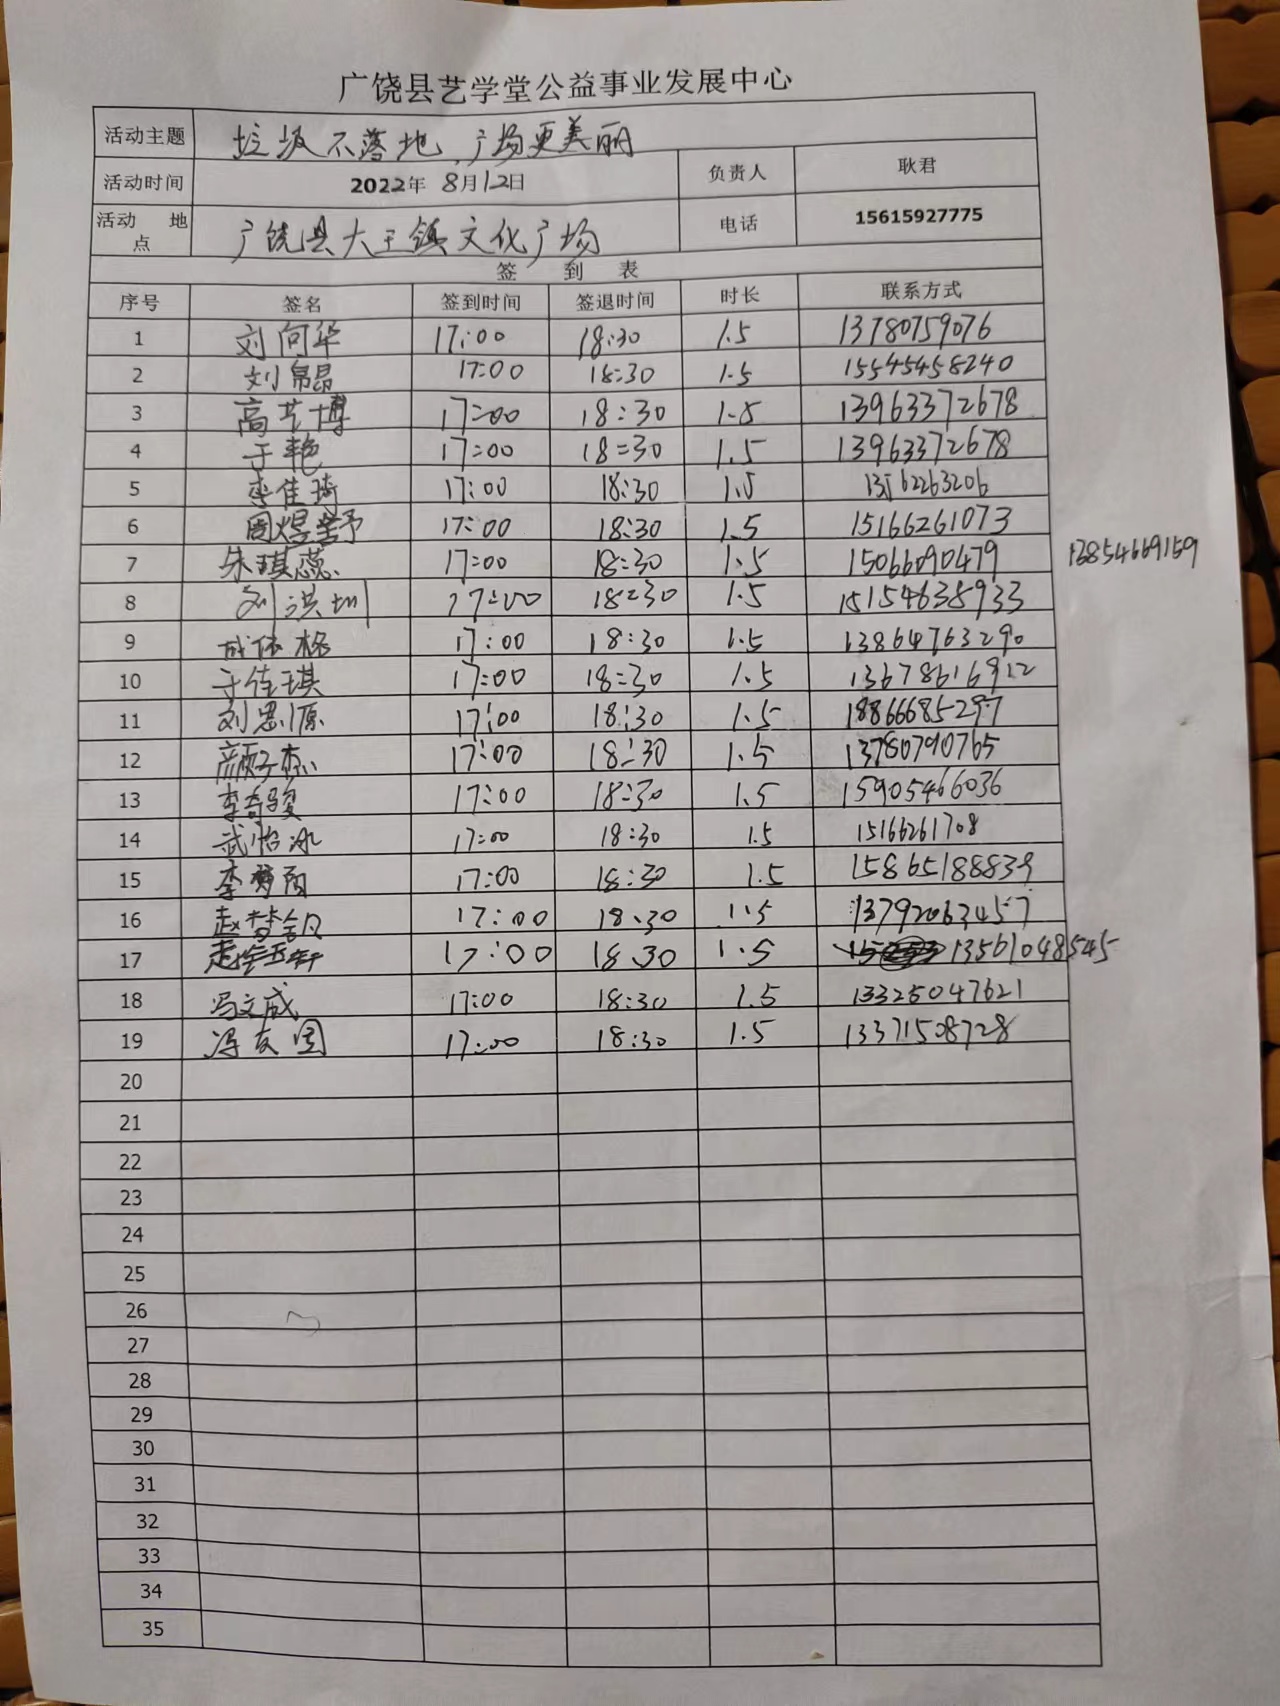 广饶县艺学堂公益事业发展中心
活动主题 垃圾不落地、广场更美丽
活动时间 2022年 8月12日 负责人 耿君
活动 地点 广饶县大王镇文化广场 电话 15615927775
签 到 表
序号 签名 签到时间 签退时间 时长 联系方式
1 刘向华 17:00 18:30 1.5 13780759076
2 刘帛昂 17:00 18:30 1.5 15545458240
3 高艺博 17:00 18:30 1.5 13963372678
4 于艳 17:00 18:30 1.5 13963372678
5 李佳琦 17:00 18:30 1.5 13562263206
6 周煜 17:00 18:30 1.5 15166261073
7 朱琪蕊 17:00 18:30 1.5 15066090479 13854669159
8 刘洪圳 17:00 18:30 1.5 15154638933
9 17:00 18:30 1.5 13864763290
10 于佳琪 17:00 18:30 1.5 13678616922
11 刘思源 17:00 18:30 1.5 18866685297
12 颜子杰 17:00 18:30 1.5 13780790765
13 李奇骏 17:00 18:30 1.5 15905466036
14 武怡冰 17:00 18:30 1.5 15166261708
15 李梦阳 17:00 18:30 1.5 15865188839
16 赵梦钥 17:00 18.30 1.5 13792063457
17 17:00 18.30 1.5 13561048545
18 冯文成 17:00 18:30 1.5 13325047621
19 冯友国 17:00 18:30 1.5 13371508728
20
21
22
23
24
25
26
27
28
29
30
31
32
33
34
35